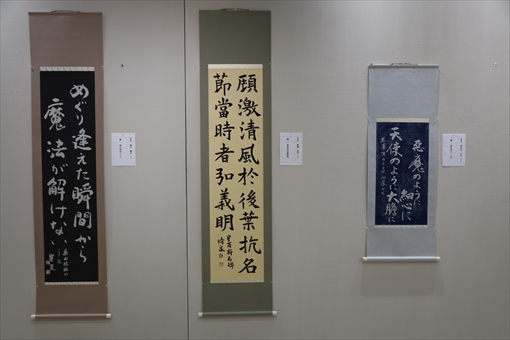 めぐり逢えた瞬間から
魔法が解けない
顧激清風於後葉抗名
節當時者弘義明
悪魔のように細心に
天使のように大胆に